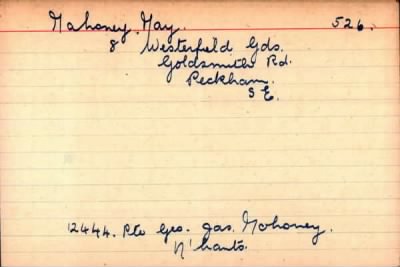 Mahoney. May. 526.
8 Westerfield Gds.
Goldsmith Rd.
Peckham.
S E.
12444. Pte Geo. Jas. Mahoney.
N'hants.